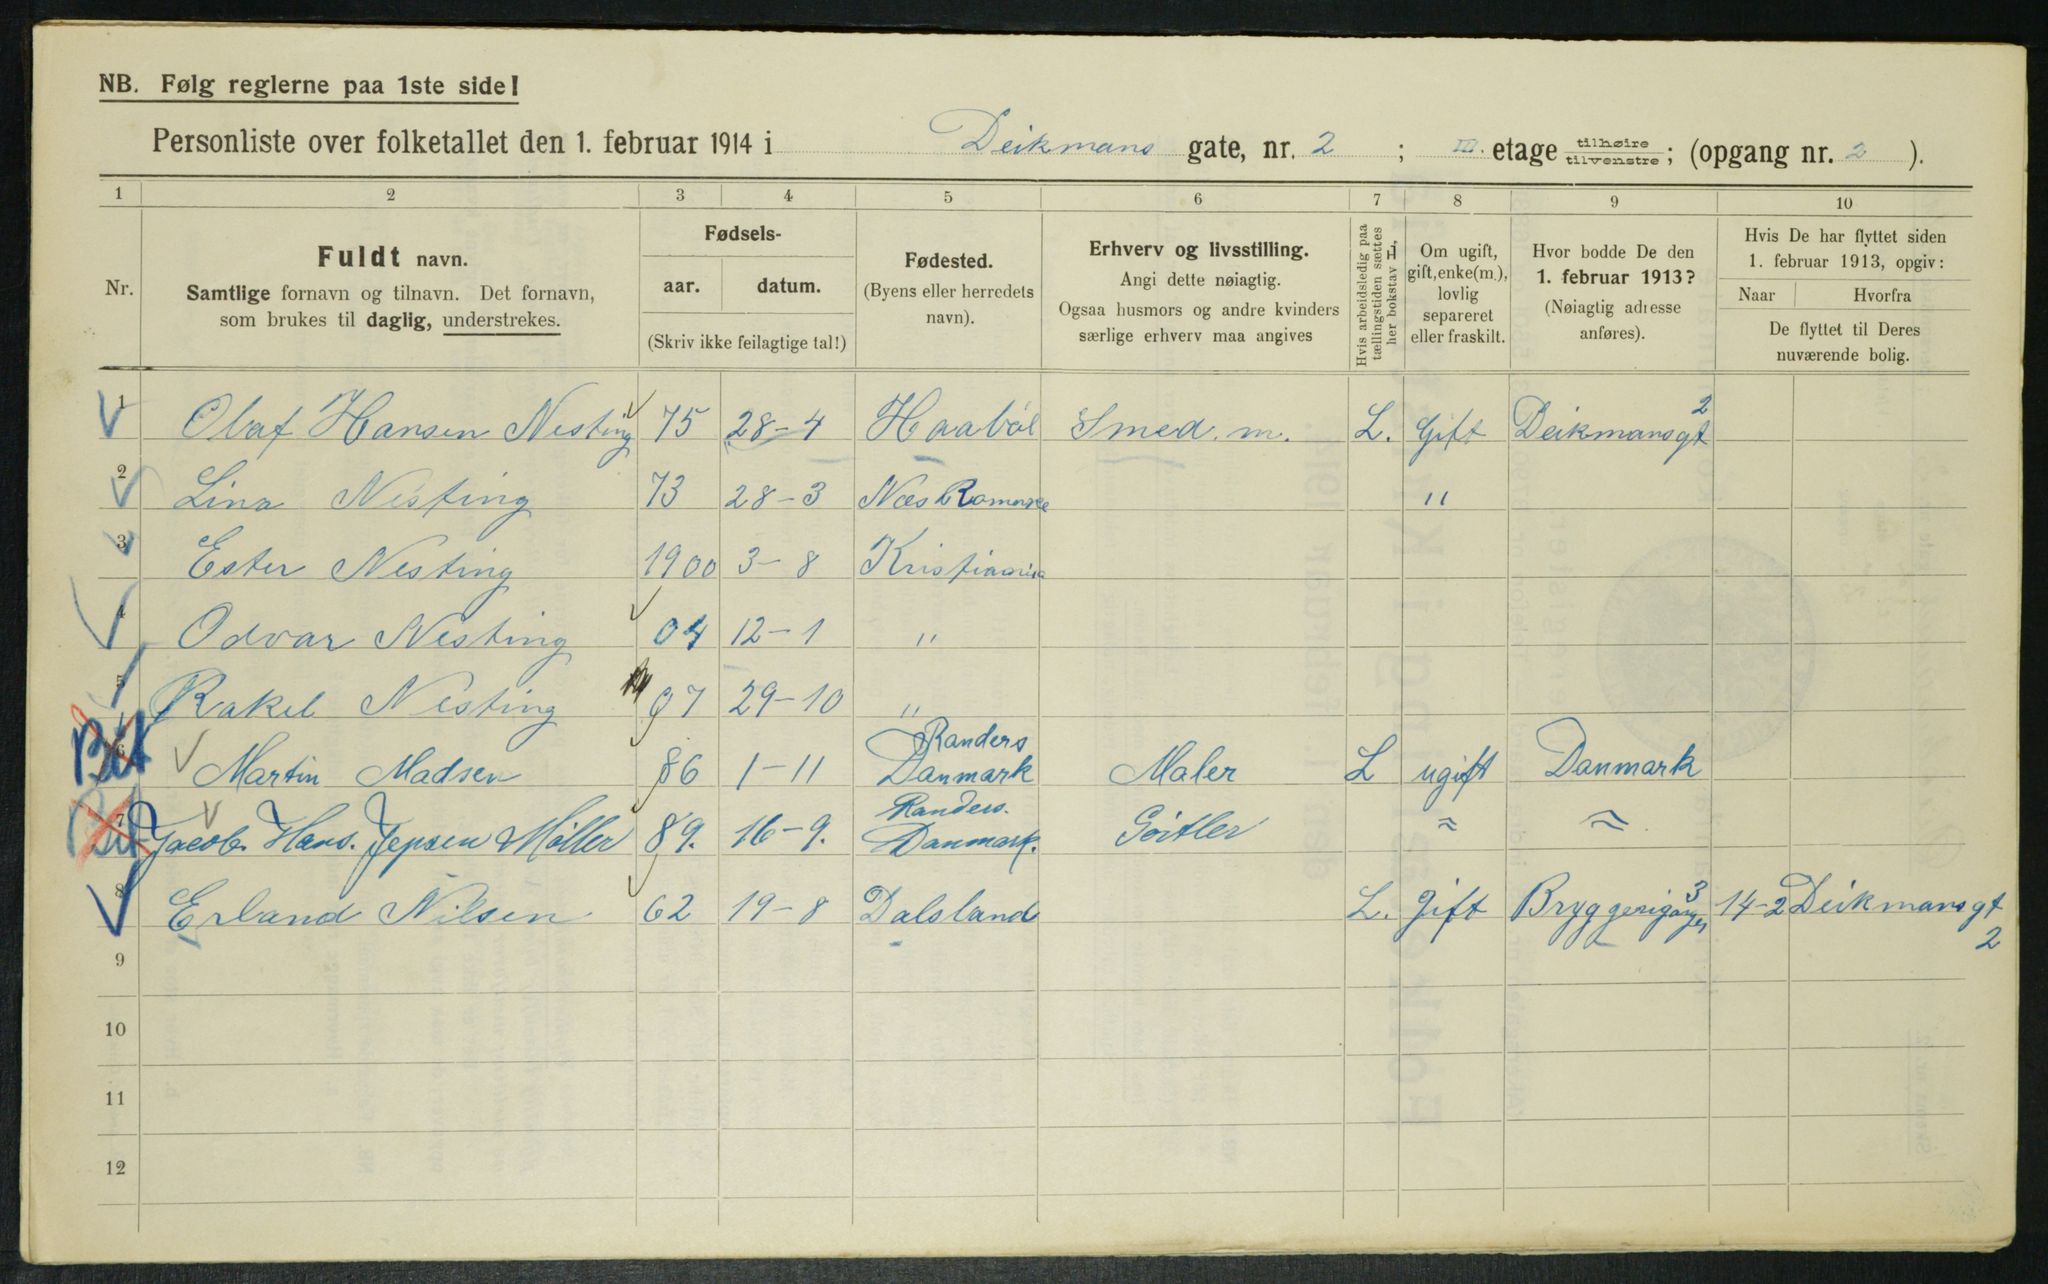 NB. Følg reglerne paa 1ste side!
Personliste over folketallet den 1. februar 1914 i Deikmans gate, nr. 2 ; III. etage tilhøire tilvenstre; (opgang nr. 2 ).
1 2 3 4 5 6 7 8 9 10
Nr.
Fuldt navn.
Samtlige fornavn og tilnavn. Det fornavn,
som brukes til daglig, understrekes.
Fødsels-
aar. datum.
(Skriv ikke feilagtige tal!)
Fødested.
(Byens eller herredets
navn).
Erhverv og livsstilling.
Angi dette nøiagtig.
Ogsaa husmors og andre kvinders
særlige erhverv maa angives
Hvis arbeidsledig paa
tællingstiden sættes
her bokstav L,
Om ugift,
gift, enke(m.),
lovlig
separeret
eller fraskilt.
Hvor bodde De den
1. februar 1913?
(Nøiagtig adresse
anføres).
Hvis De har flyttet siden
1. februar 1913, opgiv:
Naar Hvorfra
De flyttet til Deres
nuværende bolig.
1 Olaf Hansen Nesting 75 28-4 Haaböl Smed. m. L. Gift Deikmansgt 2
2 Lina Nesting 73 28-3 Næs Romerike "
3 Ester Nesting 1900 3-8 Kristiania
4 Odvar Nesting 04 12-1 "
5 Rakel Nesting 07 29-10 "
Bit 6 Martin Madsen 86 1-11 Randers Danmark Maler L ugift Danmark
Bit 7 Jacob. Hans. Jepsen Möller 89. 16-9. Randers. Danmark. Göitler " "
8 Erland Nilsen 62 19-8 Dalsland L. Gift 3 14-2 Deikmans gt 2
9
10
11
12